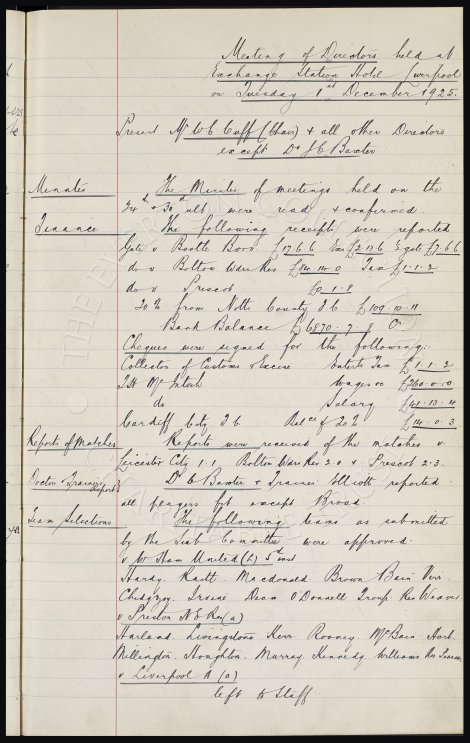 Meeting of Directors held at
Exchange Station Hotel Liverpool
on Tuesday 1st December 1925.
Present Mr W C Cuff (Chair) & all other Directors
except Dr J C Baxter
Minutes The Minutes of meetings held on the
24th & 30th ult were read & confirmed.
Finance The following receipts were reported
Gate v Bootle Boro £17.6.6 Tax £2.13.6 ½ gate £7.6.6
do v Bolton Wdrs Res £84.14.0 Tax £1.1.2
do v Prescot £0.1.8
20% from Notts County F C £109.10.11
Bank Balance £6870.7.8 Cr
Cheques were signed for the following:
Collector of Customs & Excise Enterts Tax £1.1.2
T H McIntosh Wages &c £260.0.0
do Salary £41.13.4
Cardiff City F C Bal of 20% £14.0.3
Reports of Matches Reports were received of the matches v
Leicester City 1.1 Bolton Wdrs Res 2.0 & Prescot 2.3.
Doctor & Trainers Reports Dr Baxter & Trainer Elliott reported
all players fit except Broad.
Team Selections The following teams as submitted
by the Sub Committee were approved.
v W Ham United (h) 5th inst
Hardy. Raitt. Macdonald. Brown Bain Virr.
Chedgzoy. Irvine Dean O'Donnell Troup. Res Weaver
v Preston N E Res (a)
Harland. Livingstone Kerr. Rooney. McBain Hart.
Millington. Houghton. Murray Kennedy. Williams Res
v Liverpool A (a)
left to Staff